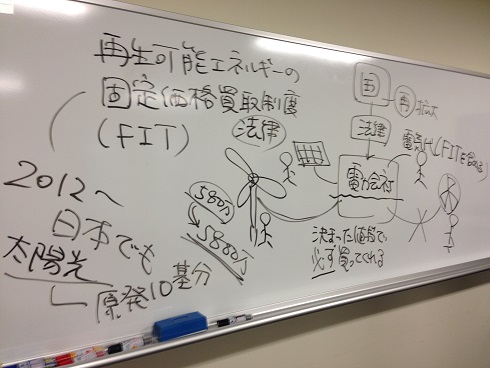 再生可能エネルギーの
固定価格買取制度
(FIT)
法律
2012〜
日本でも
太陽光
原発10基分
580万
5800万
国
再
法律
電力会社
決まった値段で
必ず買ってくれる
電気代(FITも含める)